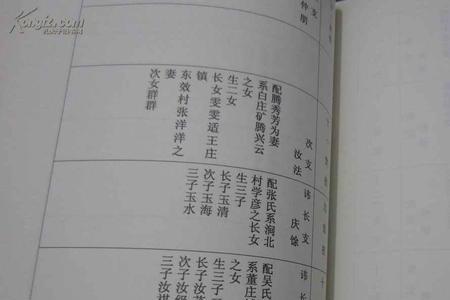 Kongfz.com
支
仲朋
次支
汝法
配腾秀芳为妻
系白庄矿腾兴云
之女
生二女
长女雯雯适王庄
镇
东效村张洋洋之
妻
次女群群
长支
讳庆馀
配张氏系涧北
村学彦之长女
生三子
长子玉清
次子玉海
三子玉水
长
讳
配吴氏
系董庄
之女
生三子
长子汝
次子汝
三子汝